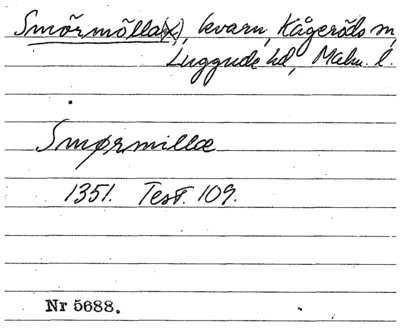 Smörmölla(x), kvarn, Kågeröds sn,
Luggude hd, Malm. l.
Smørmillæ
1351. Test. 109.
Nr 5688.